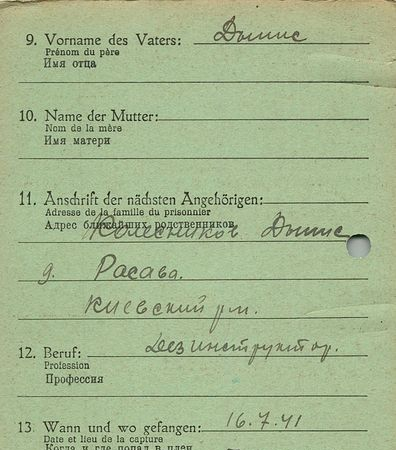 9. Vorname des Vaters: Дынис
Prénom du père
Имя отца
10. Name der Mutter:
Nom de la mère
Имя матери
11. Anschrift der nächsten Angehörigen:
Adresse de la famille du prisonnier
Адрес ближайших родственников
Колесников Дынис
д. Расава.
Киевский рн.
12. Beruf: Дезинструктор.
Profession
Профессия
13. Wann und wo gefangen: 16.7.41
Date et lieu de la capture
Когда и где попал в плен